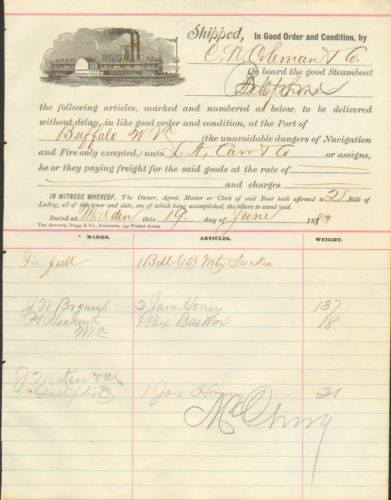 Shipped, In Good Order and Condition, by
C. N. Coleman & Co.
On board the good Steamboat
Telephone
the following articles, marked and numbered as below, to be delivered
without delay, in like good order and condition, at the Port of
Buffalo (the unavoidable dangers of Navigation
and Fire only excepted,) unto L. A. Carr & Co or assigns,
he or they paying freight for the said goods at the rate of
and charges
IN WITNESS WHEREOF, The Owner, Agent, Master or Clerk of said Boat hath affirmed to 2 Bills of
Lading, all of this tenor and date, one of which being accomplished, the others to stand void.
Dated at this 19 day of June 1889
MARKS. ARTICLES. WEIGHT.
In full 1 Bdl (15) Mty Sacks
J W Bryant 2 Jars Honey 137
Pt Pleasant 1 Box 18
1 Honey